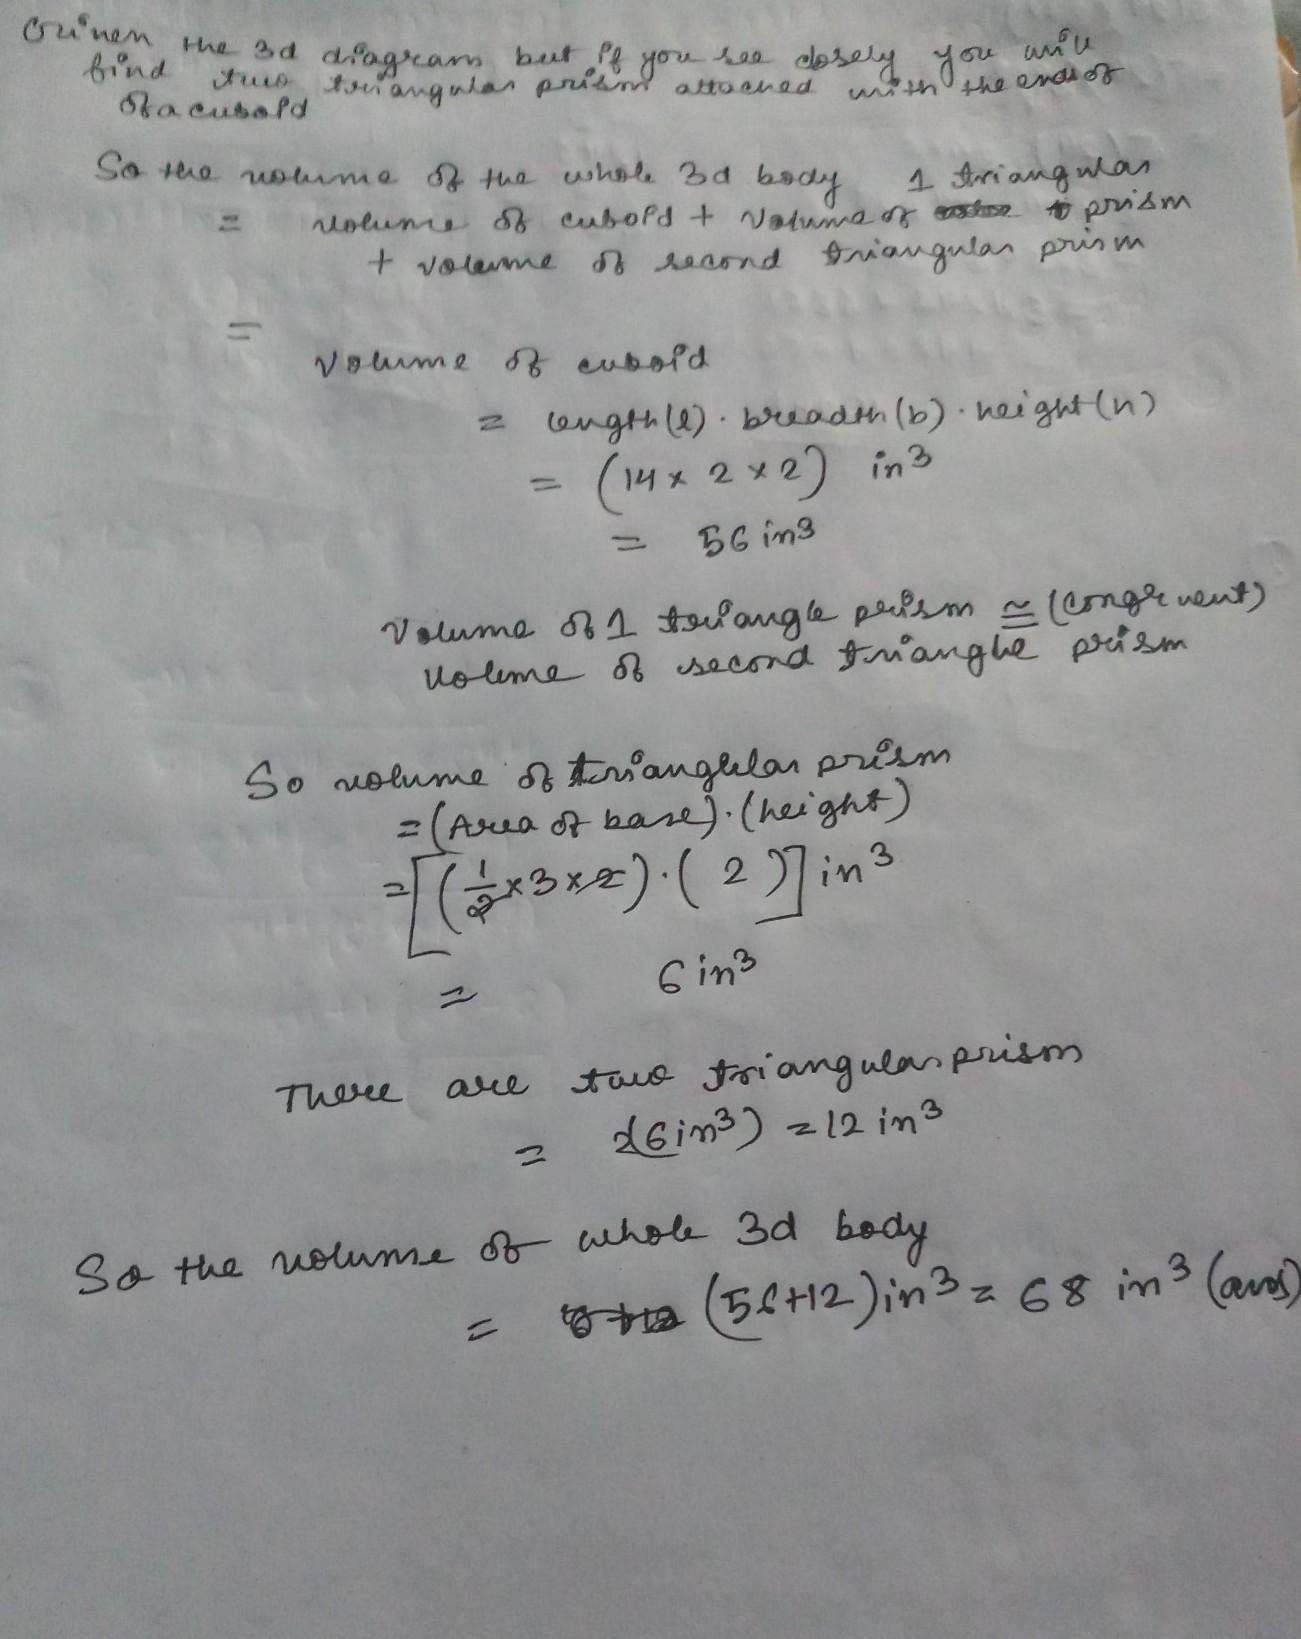 Given the 3d diagram but if you see closely you will
find two triangular prism attached with the ends of
of a cuboid
So the volume of the whole 3d body 1 triangular
= volume of cuboid + volume of prism
+ volume of second triangular prism
=
Volume of cuboid
= length(l) . breadth(b) . height(h)
= (14 x 2 x 2) in³
= 56 in³
Volume of 1 triangle prism ≅ (congruent)
volume of second triangle prism
So volume of triangular prism
= (Area of base).(height)
= [(1/2 x 3 x 2).( 2 )] in³
= 6 in³
There are two triangular prism
= 2(6in³) = 12 in³
So the volume of whole 3d body
= (56+12)in³ = 68 in³ (ans)